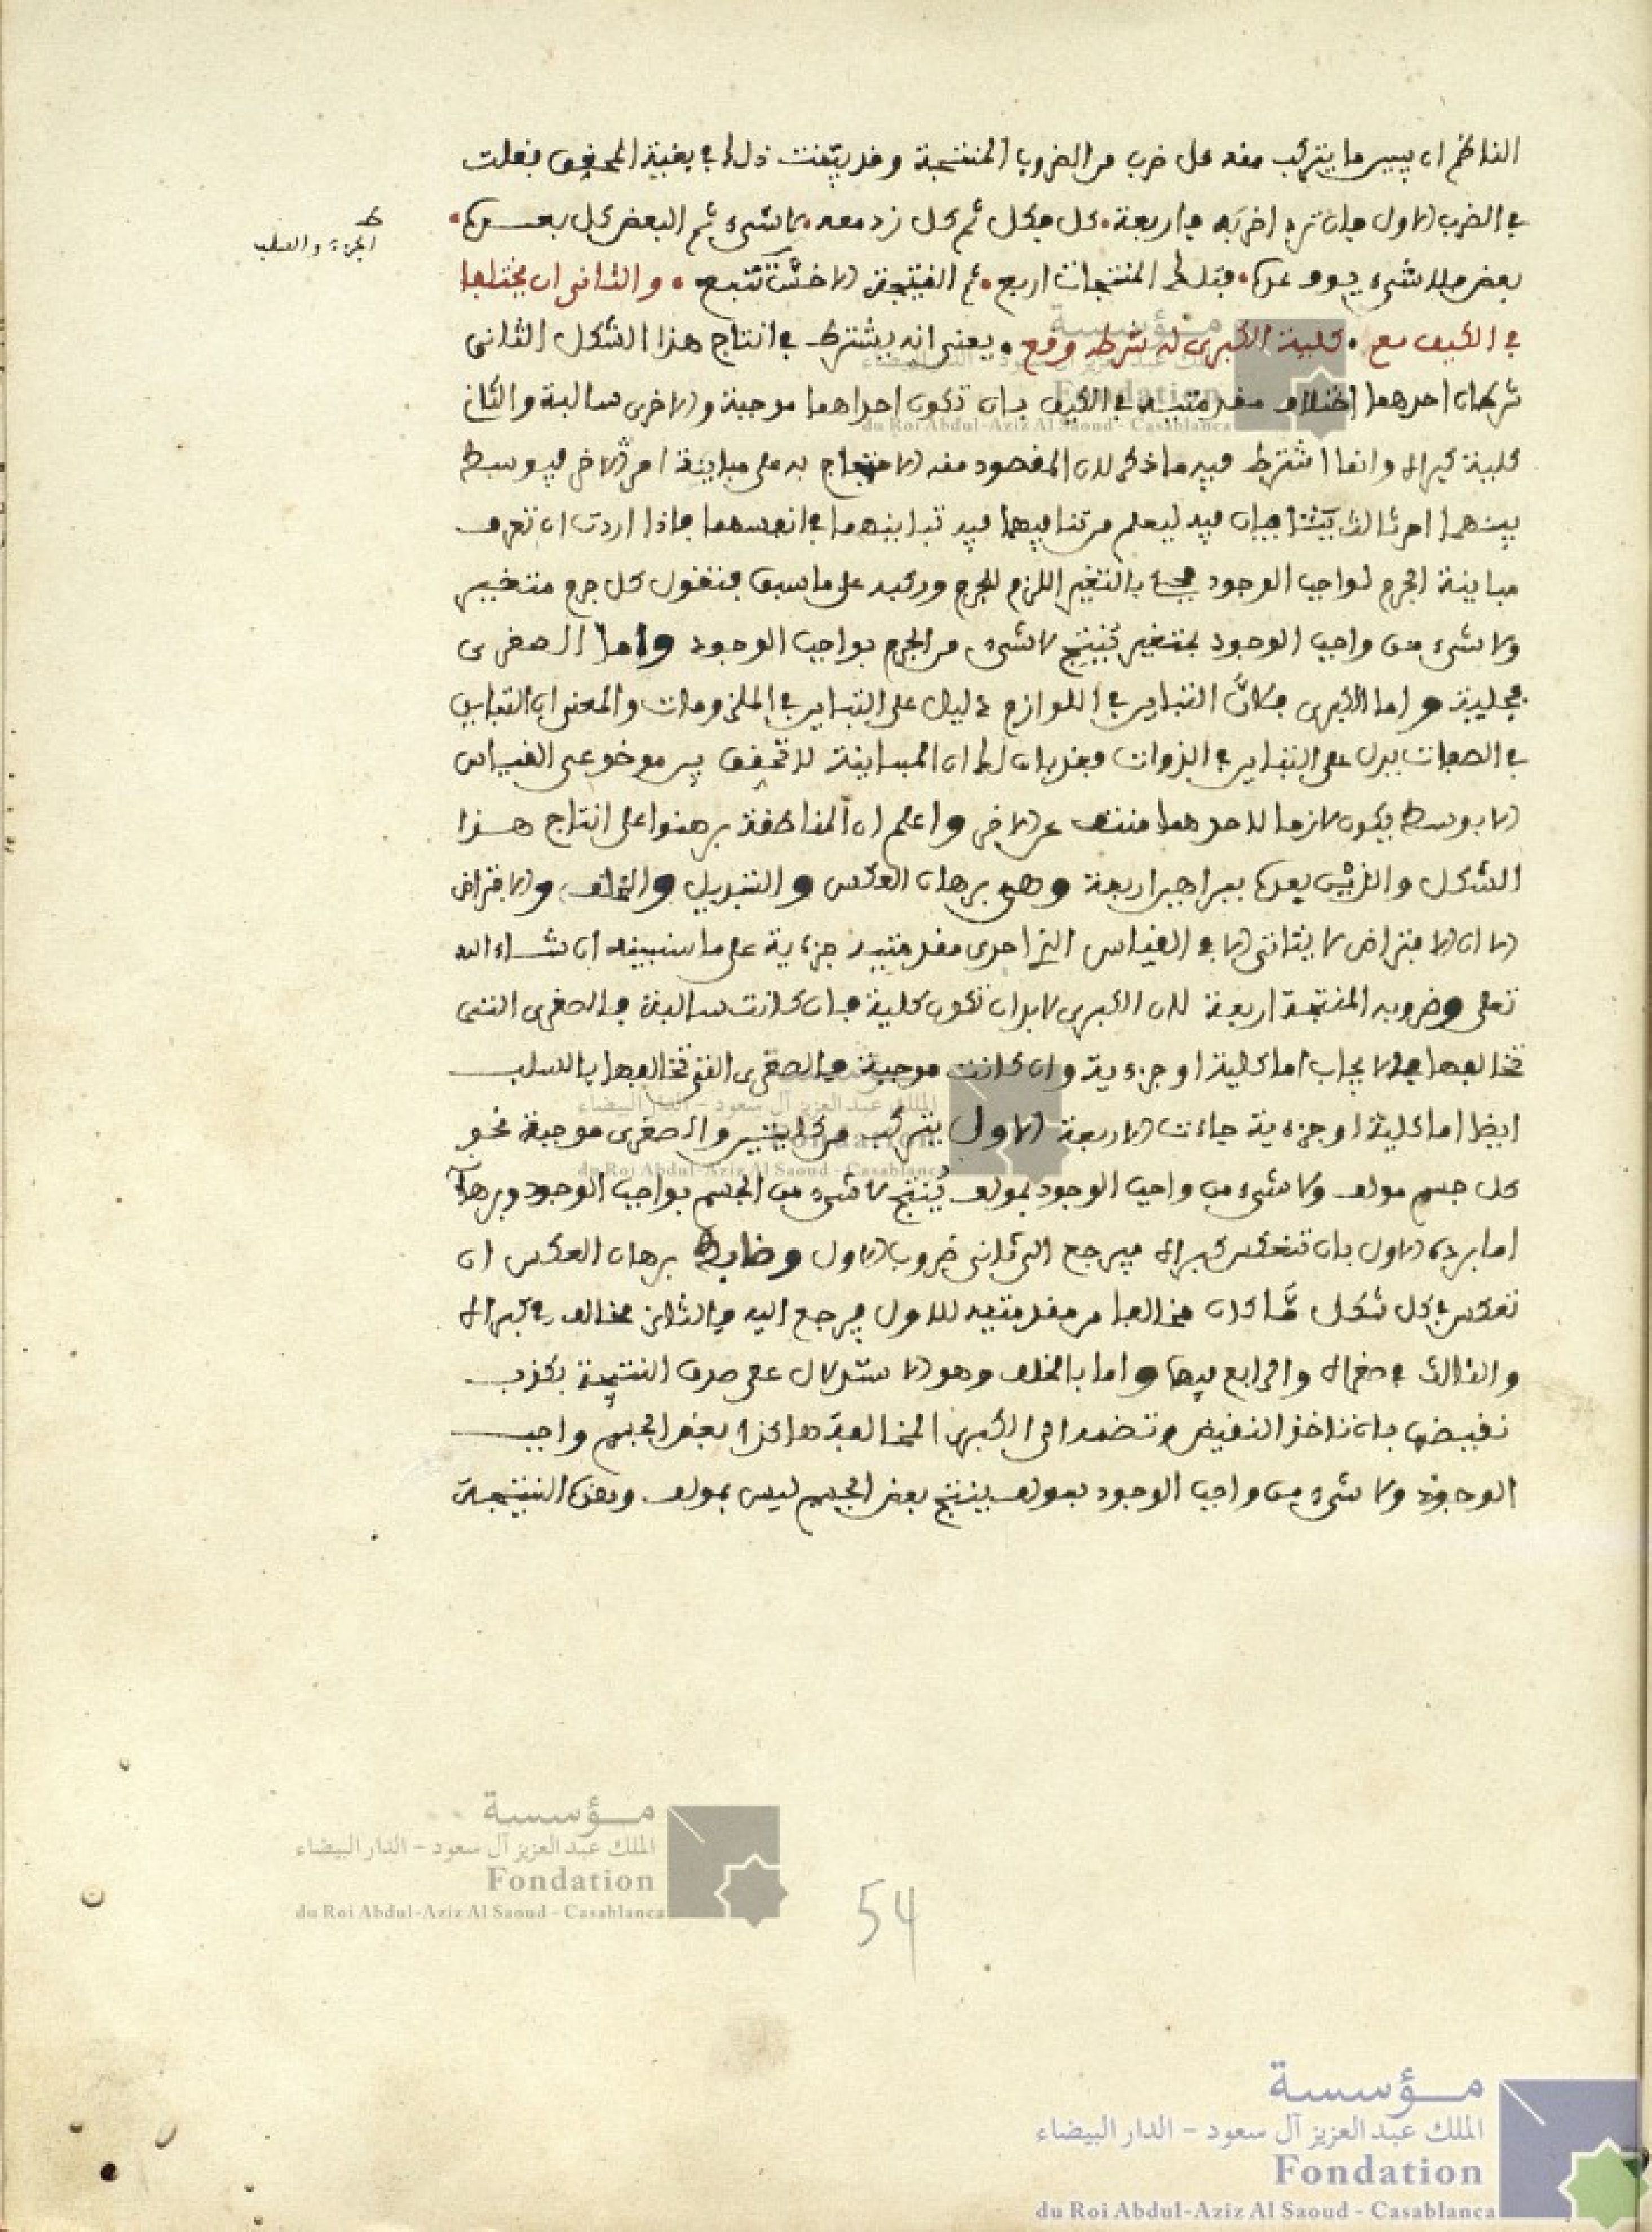 الناظم ان يبين ما يتركب منه كل ضرب من الضروب المنتجة وقد بينت ذلك في بغية المحقق فقلت
في الضرب الاول فان ترد اضربه فاربعة • كل فكل ثم كل زد معه • لا شيء ثم البعض كل بعدها •
بعض فلا شيء عدها • فتلك المنتجات اربع • ثم النتيجة الاخس تتبع • والثاني ان يختلفا
في الكيف مع • كلية الكبرى له شرط وقع • يعني انه يشترط في انتاج هذا الشكل الثاني
شرطان احدهما اختلاف مقدمتيه في الكيف بان تكون احداهما موجبة والاخرى سالبة والثان
كلية كبراه وانما اشترط فيه ما ذكر لان المقصود منه الاحتجاج به على مباينة امر لاخر فيوسط
بينهما امر ثالث يتنافيان فيه ليعلم من تنافيهما فيه تباينهما في انفسهما فاذا اردت ان تعرف
مباينة الجرم لواجب الوجود بالتغير اللازم للجرم وركبه على ما سبق فتقول كل جرم متغير
ولا شيء من واجب الوجود بمتغير ينتج لا شيء من الجرم بواجب الوجود واما الصغرى
فجلية واما الكبرى فلان التباين في اللوازم دليل على التباين في الملزومات والمعنى ان التباين
في الصفات يدل على التباين في الذوات فقد بان لك ان المباينة لا تحقق بين موضوعي القياس
الا بوسط يكون لازما لاحدهما منتف عن الاخر واعلم ان المناطقة برهنوا على انتاج هذا
الشكل والذين بعده ببراهين اربعة وهي برهان العكس والتبديل والخلف والافتراض
الا ان الافتراض لا يتاتى الا في القياس الذي احدى مقدمتيه جزءية على ما سنبينه ان شاء الله
تعلى وضروبه المنتجة اربعة لان الكبرى لا بد ان تكون كلية فان كانت سالبة فالصغرى التي
تخالفها بالايجاب اما كلية او جزءية وان كانت موجبة فالصغرى التي تخالفها بالسلب
ايضا اما كلية او جزءية جاءت الاربعة الاول يتركب من كليتين والصغرى موجبة نحو
كل جسم مولف ولا شيء من واجب الوجود بمولف ينتج لا شيء من الجسم بواجب الوجود وبرهانه
اما برده للاول بان تنعكس كبراه فيرجع الى ثاني ضروب الاول وضابط برهان العكس ان
تعكس في كل شكل ما كان مخالفا من مقدمتيه للاول فيرجع اليه فالثاني مخالف في كبراه
والثالث في صغراه والرابع فيهما واما بالخلف وهو الاستدلال على صدق النتيجة بكذب
نقيضها بان تاخذ النقيض وتضمه الى الكبرى المخالفة هاكذا بعض الجسم واجب
الوجود ولا شيء من واجب الوجود بمولف ينتج بعض الجسم ليس بمولف وهذه النتيجة
ط
الجزء والسلب
54
مؤسسة
الملك عبد العزيز آل سعود - الدار البيضاء
Fondation
du Roi Abdul-Aziz Al Saoud - Casablanca
مؤسسة
الملك عبد العزيز آل سعود - الدار البيضاء
Fondation
du Roi Abdul-Aziz Al Saoud - Casablanca